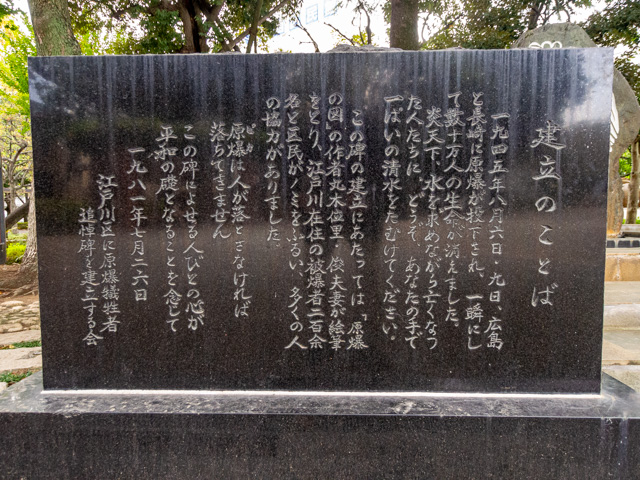 建立のことば
一九四五年八月六日・九日、広島
と長崎に原爆が投下され、一瞬にし
て数十万人の生命が消えました。
炎天下、水を求めながら亡くなっ
た人たちに、どうぞ、あなたの手で
一ぱいの清水をたむけてください。
この碑の建立にあたっては、「原爆
の図」の作者丸木位里、俊夫妻が絵筆
をとり、江戸川在住の被爆者二百余
名と区民がノミをふるい、多くの人
の協力がありました。
原爆は人が落とさなければ
ピカ
落ちてきません
この碑によせる人びとの心が
平和の礎となることを念じて
一九八一年七月二六日
江戸川区に原爆犠牲者
追悼碑を建立する会